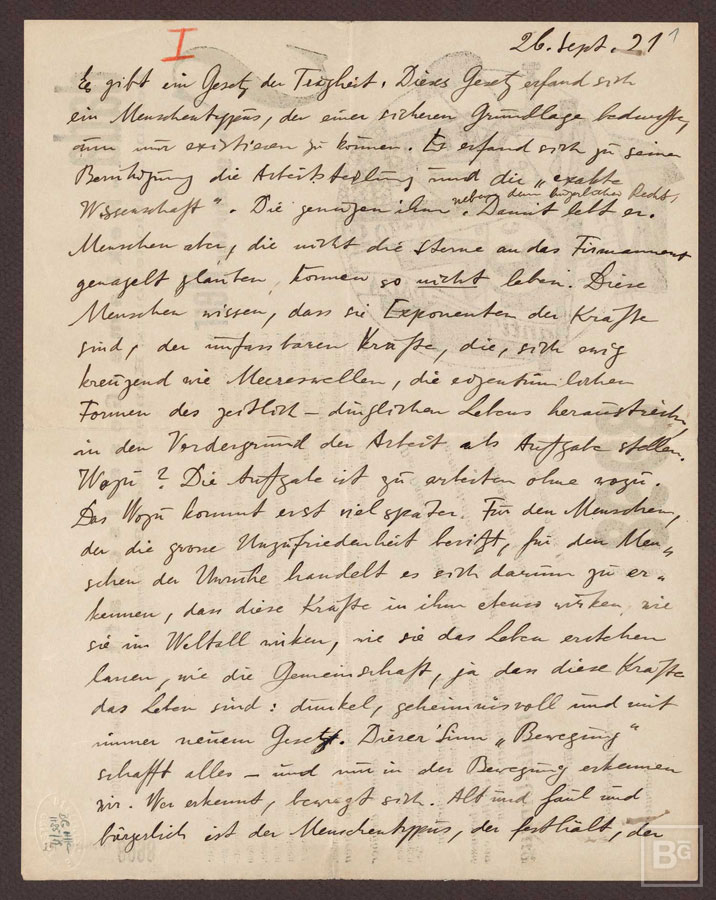 I
26. Sept. 21 1
Es gibt ein Gesetz der Trägheit. Dieses Gesetz erfand sich
ein Menschentypus, der einer sicheren Grundlage bedurfte,
um nur existieren zu können. Er erfand sich zu seiner
Beruhigung die Arbeitsteilung und die „exakte
Wissenschaft". Die genügen ihm neben dem bürgerlichen Recht. Damit lebt er.
Menschen aber, die nicht die Sterne an das Firmament
genagelt glauben, können so nicht leben. Diese
Menschen wissen, dass sie Exponenten der Kräfte
sind, der unfassbaren Kräfte, die, sich ewig
kreuzend wie Meereswellen, die eigentümlichen
Formen des zeitlich-dinglichen Lebens heraustreiben,
in den Vordergrund der Arbeit als Aufgabe stellen.
Wozu? Die Aufgabe ist zu arbeiten ohne wozu.
Das Wozu kommt erst viel später. Für den Menschen,
der die grosse Unzufriedenheit besitzt, für den Men„
schen der Unruhe handelt es sich darum zu er„
kennen, dass diese Kräfte in ihm ebenso wirken, wie
sie im Weltall wirken, wie sie das Leben erstehen
lassen, wie die Gemeinschaft, ja dass diese Kräfte
das Leben sind: dunkel, geheimnisvoll und mit
immer neuem Gesetz. Dieser Sinn „Bewegung"
schafft alles – und nur in der Bewegung erkennen
wir. Wer erkennt, bewegt sich. Alt und faul und
bürgerlich ist der Menschentypus, der festhält, der
BG